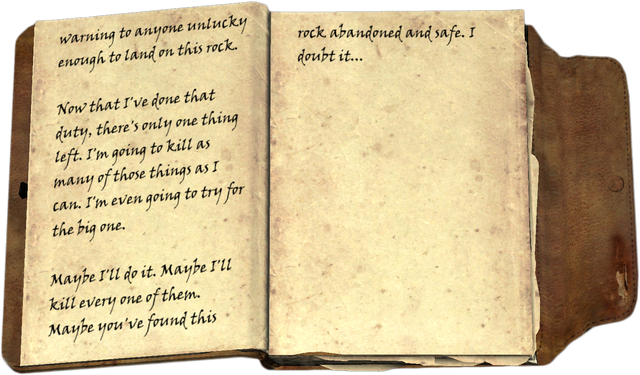 warning to anyone unlucky
enough to land on this rock.
Now that I've done that
duty, there's only one thing
left. I'm going to kill as
many of those things as I
can. I'm even going to try for
the big one.
Maybe I'll do it. Maybe I'll
kill every one of them.
Maybe you've found this
rock abandoned and safe. I
doubt it...